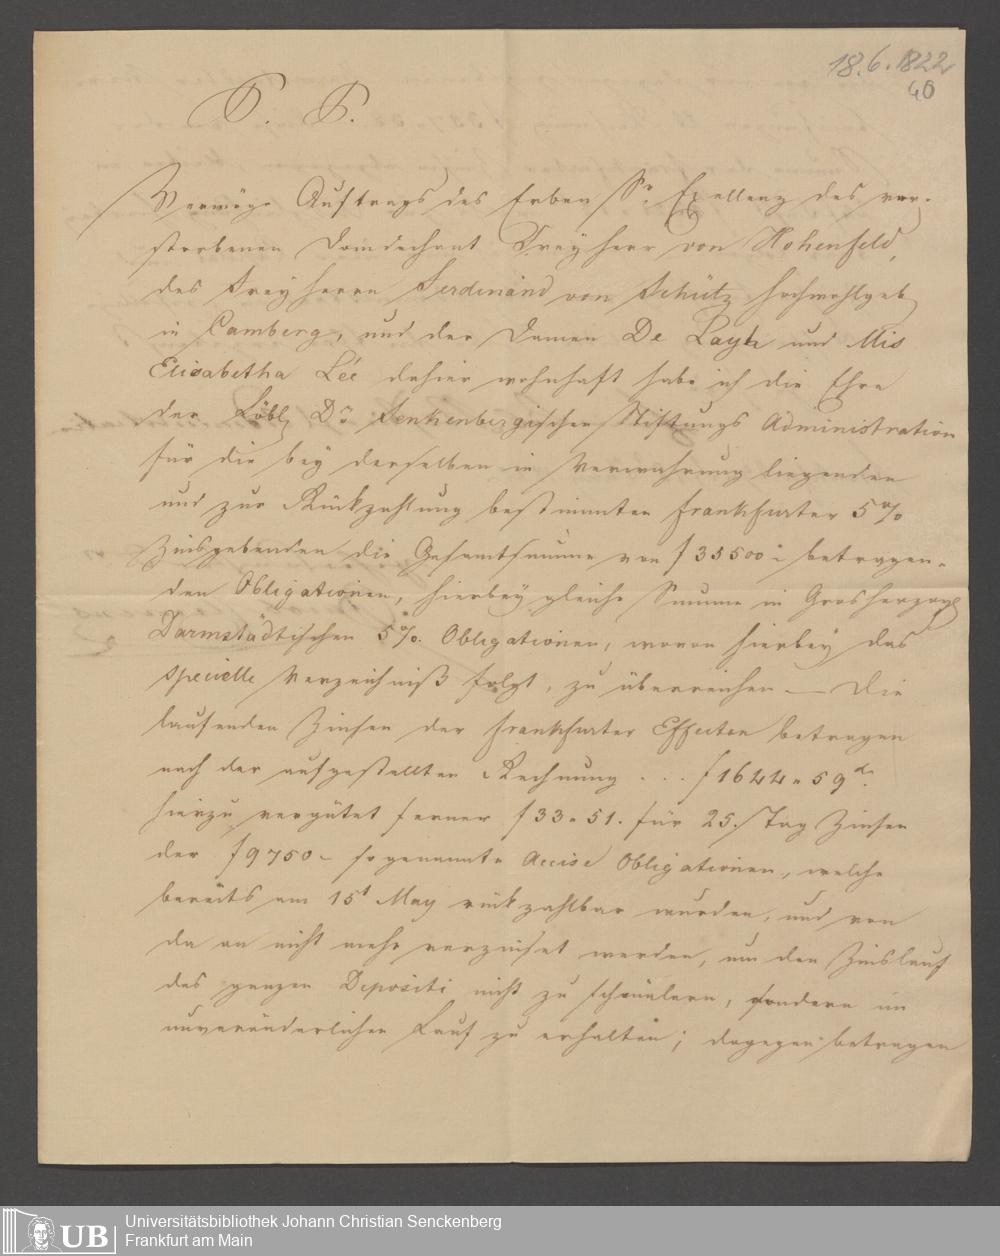 18.6.1822
40
P. P.
Vermöge Auftrags des Erben Sr Exellenz des ver-
storbenen Domdechant Freyherr von Hohenfeld,
des Freyherrn Ferdinand von Schütz hochwohlgeb
in Camberg, und der Damen De Layh und Mis
Elisabetha Lée dahier wohnhaft habe ich die Ehre
der Löbl Dr Senkenbergischen Stiftungs Administration
für die bey derselben in Verwahrung liegenden
und zur Rückzahlung bestimmten Frankfurter 5 %
Zinsgebenden die Gesamtsumme von f 35500 betragen-
den Obligationen, hierbey gleiche Summe in Grosherzogl
Darmstädtischen 5 %. Obligationen, wovon hierbey das
specielle Verzeichniß folgt, zu überreichen — Die
laufenden Zinsen der Frankfurter Effecten betragen
nach der aufgestellten Rechnung . . . f 1644 " 59
hierzu vergütet ferner f 33 " 51. für 25. Tag Zinsen
der f 9750 - sogenannte Accise Obligationen, welche
bereits am 15t May rückzahlbar wurden, und von
da an nicht mehr verzinset werden, um den Zinslauf
des ganzen Depositi nicht zu schmälern, sondern im
unveränderlichen Lauf zu erhalten; dagegen betragen
UB
Universitätsbibliothek Johann Christian Senckenberg
Frankfurt am Main